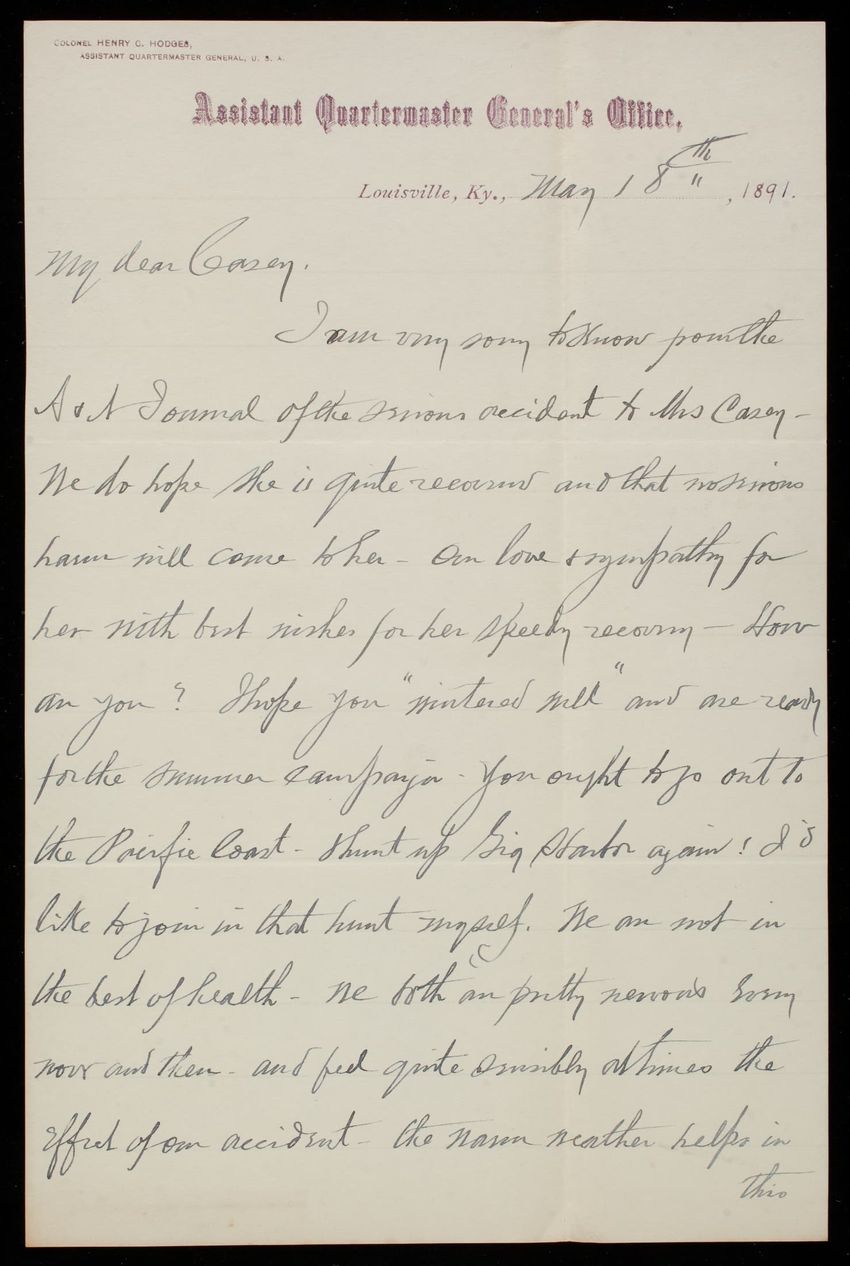 COLONEL HENRY C. HODGES,
ASSISTANT QUARTERMASTER GENERAL, U. S. A.
Assistant Quartermaster General's Office,
Louisville, Ky., May 18th, 1891.
My dear Casey.
I am very sorry to know from the
A & N Journal of the serious accident to Mrs Casey -
We do hope she is quite recovered and that no serious
harm will come to her - Our love & sympathy for
her with best wishes for her speedy recovery - How
are you? I hope you "wintered well" and are ready
for the summer campaign - You ought to go out to
the Pacific Coast - & hunt up Gig Harbor again! I'd
like to join in that hunt myself. We are not in
the best of health - we both are pretty nervous every
now and then - and feel quite sensibly at times the
effect of our accident - the warm weather helps in
this